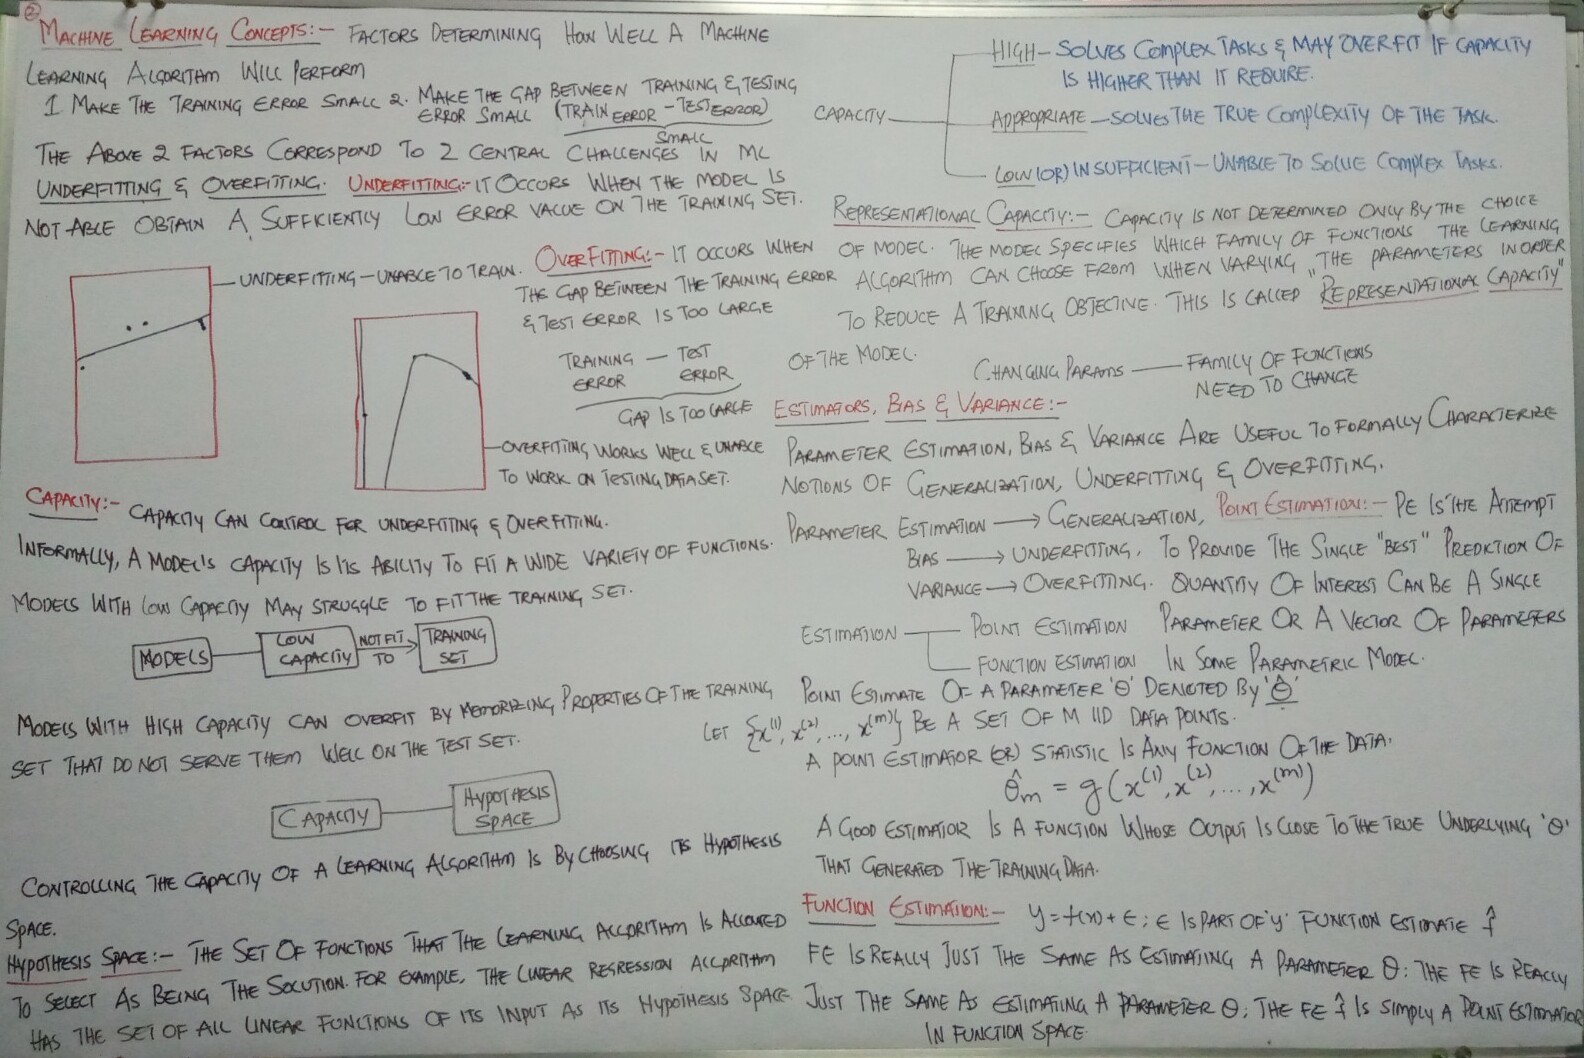 ②
MACHINE LEARNING CONCEPTS:- FACTORS DETERMINING HOW WELL A MACHINE
LEARNING ALGORITHM WILL PERFORM
1. MAKE THE TRAINING ERROR SMALL 2. MAKE THE GAP BETWEEN TRAINING & TESTING
ERROR SMALL (TRAIN ERROR - TEST ERROR)
SMALL
THE ABOVE 2 FACTORS CORRESPOND TO 2 CENTRAL CHALLENGES IN ML
UNDERFITTING & OVERFITTING. UNDERFITTING:- IT OCCURS WHEN THE MODEL IS
NOT ABLE OBTAIN A SUFFICIENTLY LOW ERROR VALUE ON THE TRAINING SET.
UNDERFITTING - UNABLE TO TRAIN.
OVERFITTING:- IT OCCURS WHEN
THE GAP BETWEEN THE TRAINING ERROR
& TEST ERROR IS TOO LARGE
TRAINING ERROR — TEST ERROR
GAP IS TOO LARGE
OVERFITTING WORKS WELL & UNABLE
TO WORK ON TESTING DATASET.
CAPACITY:- CAPACITY CAN CONTROL FOR UNDERFITTING & OVERFITTING.
INFORMALLY, A MODEL'S CAPACITY IS ITS ABILITY TO FIT A WIDE VARIETY OF FUNCTIONS.
MODELS WITH LOW CAPACITY MAY STRUGGLE TO FIT THE TRAINING SET.
MODELS
LOW CAPACITY
NOT FIT TO
TRAINING SET
MODELS WITH HIGH CAPACITY CAN OVERFIT BY MEMORIZING PROPERTIES OF THE TRAINING
SET THAT DO NOT SERVE THEM WELL ON THE TEST SET.
CAPACITY
HYPOTHESIS SPACE
CONTROLLING THE CAPACITY OF A LEARNING ALGORITHM IS BY CHOOSING ITS HYPOTHESIS
SPACE.
HYPOTHESIS SPACE:- THE SET OF FUNCTIONS THAT THE LEARNING ALGORITHM IS ALLOWED
TO SELECT AS BEING THE SOLUTION. FOR EXAMPLE, THE LINEAR REGRESSION ALGORITHM
HAS THE SET OF ALL LINEAR FUNCTIONS OF ITS INPUT AS ITS HYPOTHESIS SPACE.
CAPACITY
HIGH - SOLVES COMPLEX TASKS & MAY OVERFIT IF CAPACITY
IS HIGHER THAN IT REQUIRE.
APPROPRIATE - SOLVES THE TRUE COMPLEXITY OF THE TASK.
LOW (OR) INSUFFICIENT - UNABLE TO SOLVE COMPLEX TASKS.
REPRESENTATIONAL CAPACITY:- CAPACITY IS NOT DETERMINED ONLY BY THE CHOICE
OF MODEL. THE MODEL SPECIFIES WHICH FAMILY OF FUNCTIONS THE LEARNING
ALGORITHM CAN CHOOSE FROM WHEN VARYING "THE PARAMETERS IN ORDER
TO REDUCE A TRAINING OBJECTIVE. THIS IS CALLED REPRESENTATIONAL CAPACITY"
OF THE MODEL.
CHANGING PARAMS — FAMILY OF FUNCTIONS
NEED TO CHANGE
ESTIMATORS, BIAS & VARIANCE:-
PARAMETER ESTIMATION, BIAS & VARIANCE ARE USEFUL TO FORMALLY CHARACTERIZE
NOTIONS OF GENERALIZATION, UNDERFITTING & OVERFITTING.
PARAMETER ESTIMATION → GENERALIZATION,
BIAS → UNDERFITTING,
VARIANCE → OVERFITTING.
POINT ESTIMATION:- PE IS THE ATTEMPT
TO PROVIDE THE SINGLE "BEST" PREDICTION OF
QUANTITY OF INTEREST CAN BE A SINGLE
PARAMETER OR A VECTOR OF PARAMETERS
IN SOME PARAMETRIC MODEL.
ESTIMATION
POINT ESTIMATION
FUNCTION ESTIMATION
POINT ESTIMATE OF A PARAMETER 'θ' DENOTED BY 'θ̂'
LET {x⁽¹⁾, x⁽²⁾, ..., x⁽ᵐ⁾} BE A SET OF M IID DATA POINTS.
A POINT ESTIMATOR (OR) STATISTIC IS ANY FUNCTION OF THE DATA.
θ̂m = g(x⁽¹⁾, x⁽²⁾, ..., x⁽ᵐ⁾)
A GOOD ESTIMATOR IS A FUNCTION WHOSE OUTPUT IS CLOSE TO THE TRUE UNDERLYING 'θ'
THAT GENERATED THE TRAINING DATA.
FUNCTION ESTIMATION:- y = f(x) + ∈; ∈ IS PART OF 'y' FUNCTION ESTIMATE f̂
FE IS REALLY JUST THE SAME AS ESTIMATING A PARAMETER θ; THE FE IS REALLY
JUST THE SAME AS ESTIMATING A PARAMETER θ; THE FE f̂ IS SIMPLY A POINT ESTIMATOR
IN FUNCTION SPACE.